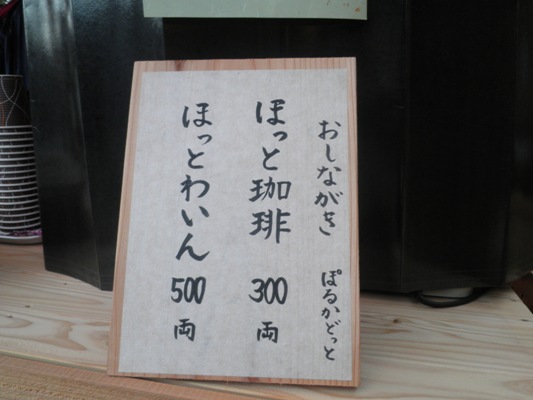 おしながき ぽるかどっと
ほっと珈琲 300両
ほっとわいん 500両